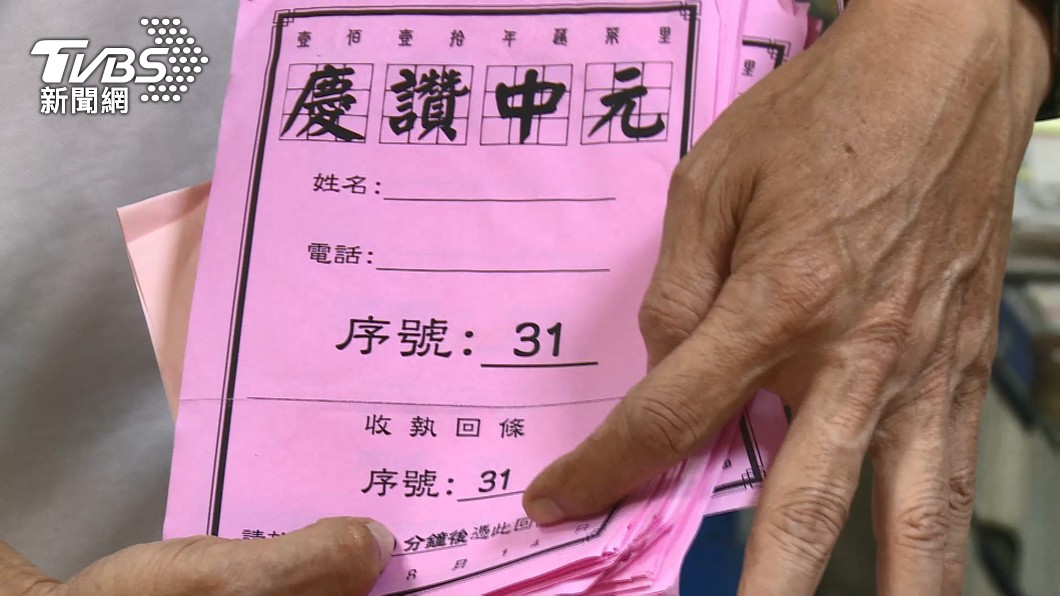 TVBS
新聞網
壹佰壹拾年蘆萊里
慶讚中元
姓名:
電話:
序號: 31
收執回條
序號: 31
分鐘後憑此回
8月14日
里